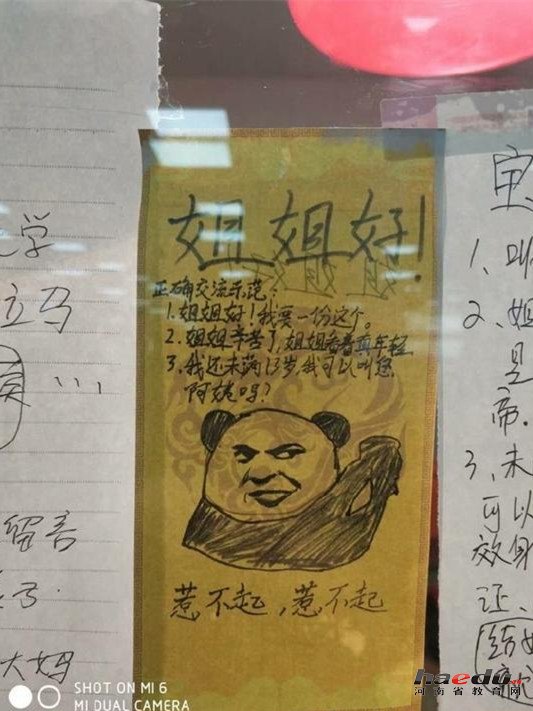 姐姐好!
正确交流示范:
1.姐姐好!我要一份这个。
2.姐姐辛苦了,姐姐看着真年轻
3.我还未满13岁,我可以叫您
阿姨吗?
惹不起,惹不起
学
立马
留言
大妈
1、叫
2、姐
是
帝.
3、未
可以
效身
证、
SHOT ON MI 6
MI DUAL CAMERA
haedu
河南省教育网